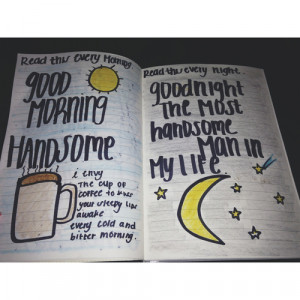 Read this Every Morning
GOOD
MORNING
HANDSOME
i envy
The cup of
coffee to kiss
your sleepy lips
awake
every cold and
bitter morning.
Read this every night.
goodnight
The Most
handsome
Man in
My life